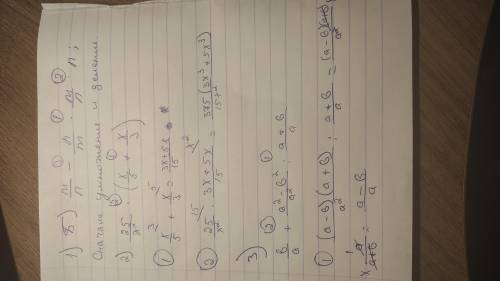 1) б) m/n - n/m · m/n : n;
Сначала умножение и деление
2) 25/x² · (x/5 + x/3)
① x/5 + x/3 = 3x+5x/15
② 25/x² · 3x+5x/15 = 375(3x³+5x³)/15x²
3)
в/a + a²-в²/a² : a+в/a
① (a-в)(a+в)/a² : a+в/a = (a-в)(a+в)/a²
x a/a+в = a-в/a